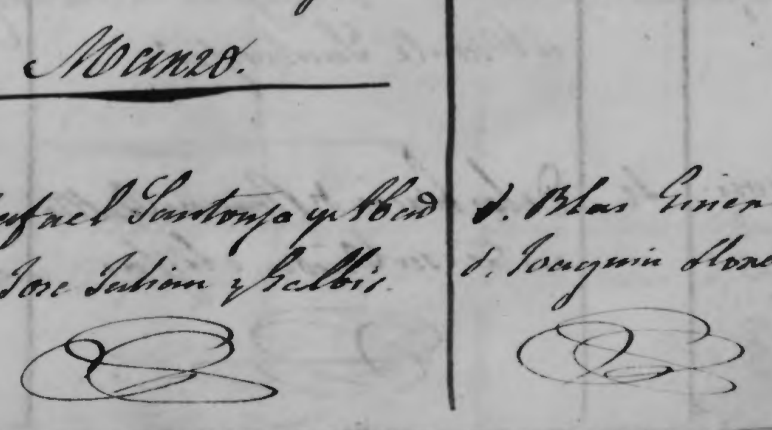 Marzo.
Rafael Santonja y Abad
Jose Julian y Galbis.
d. Blas Giner
d. Joaquin Llore